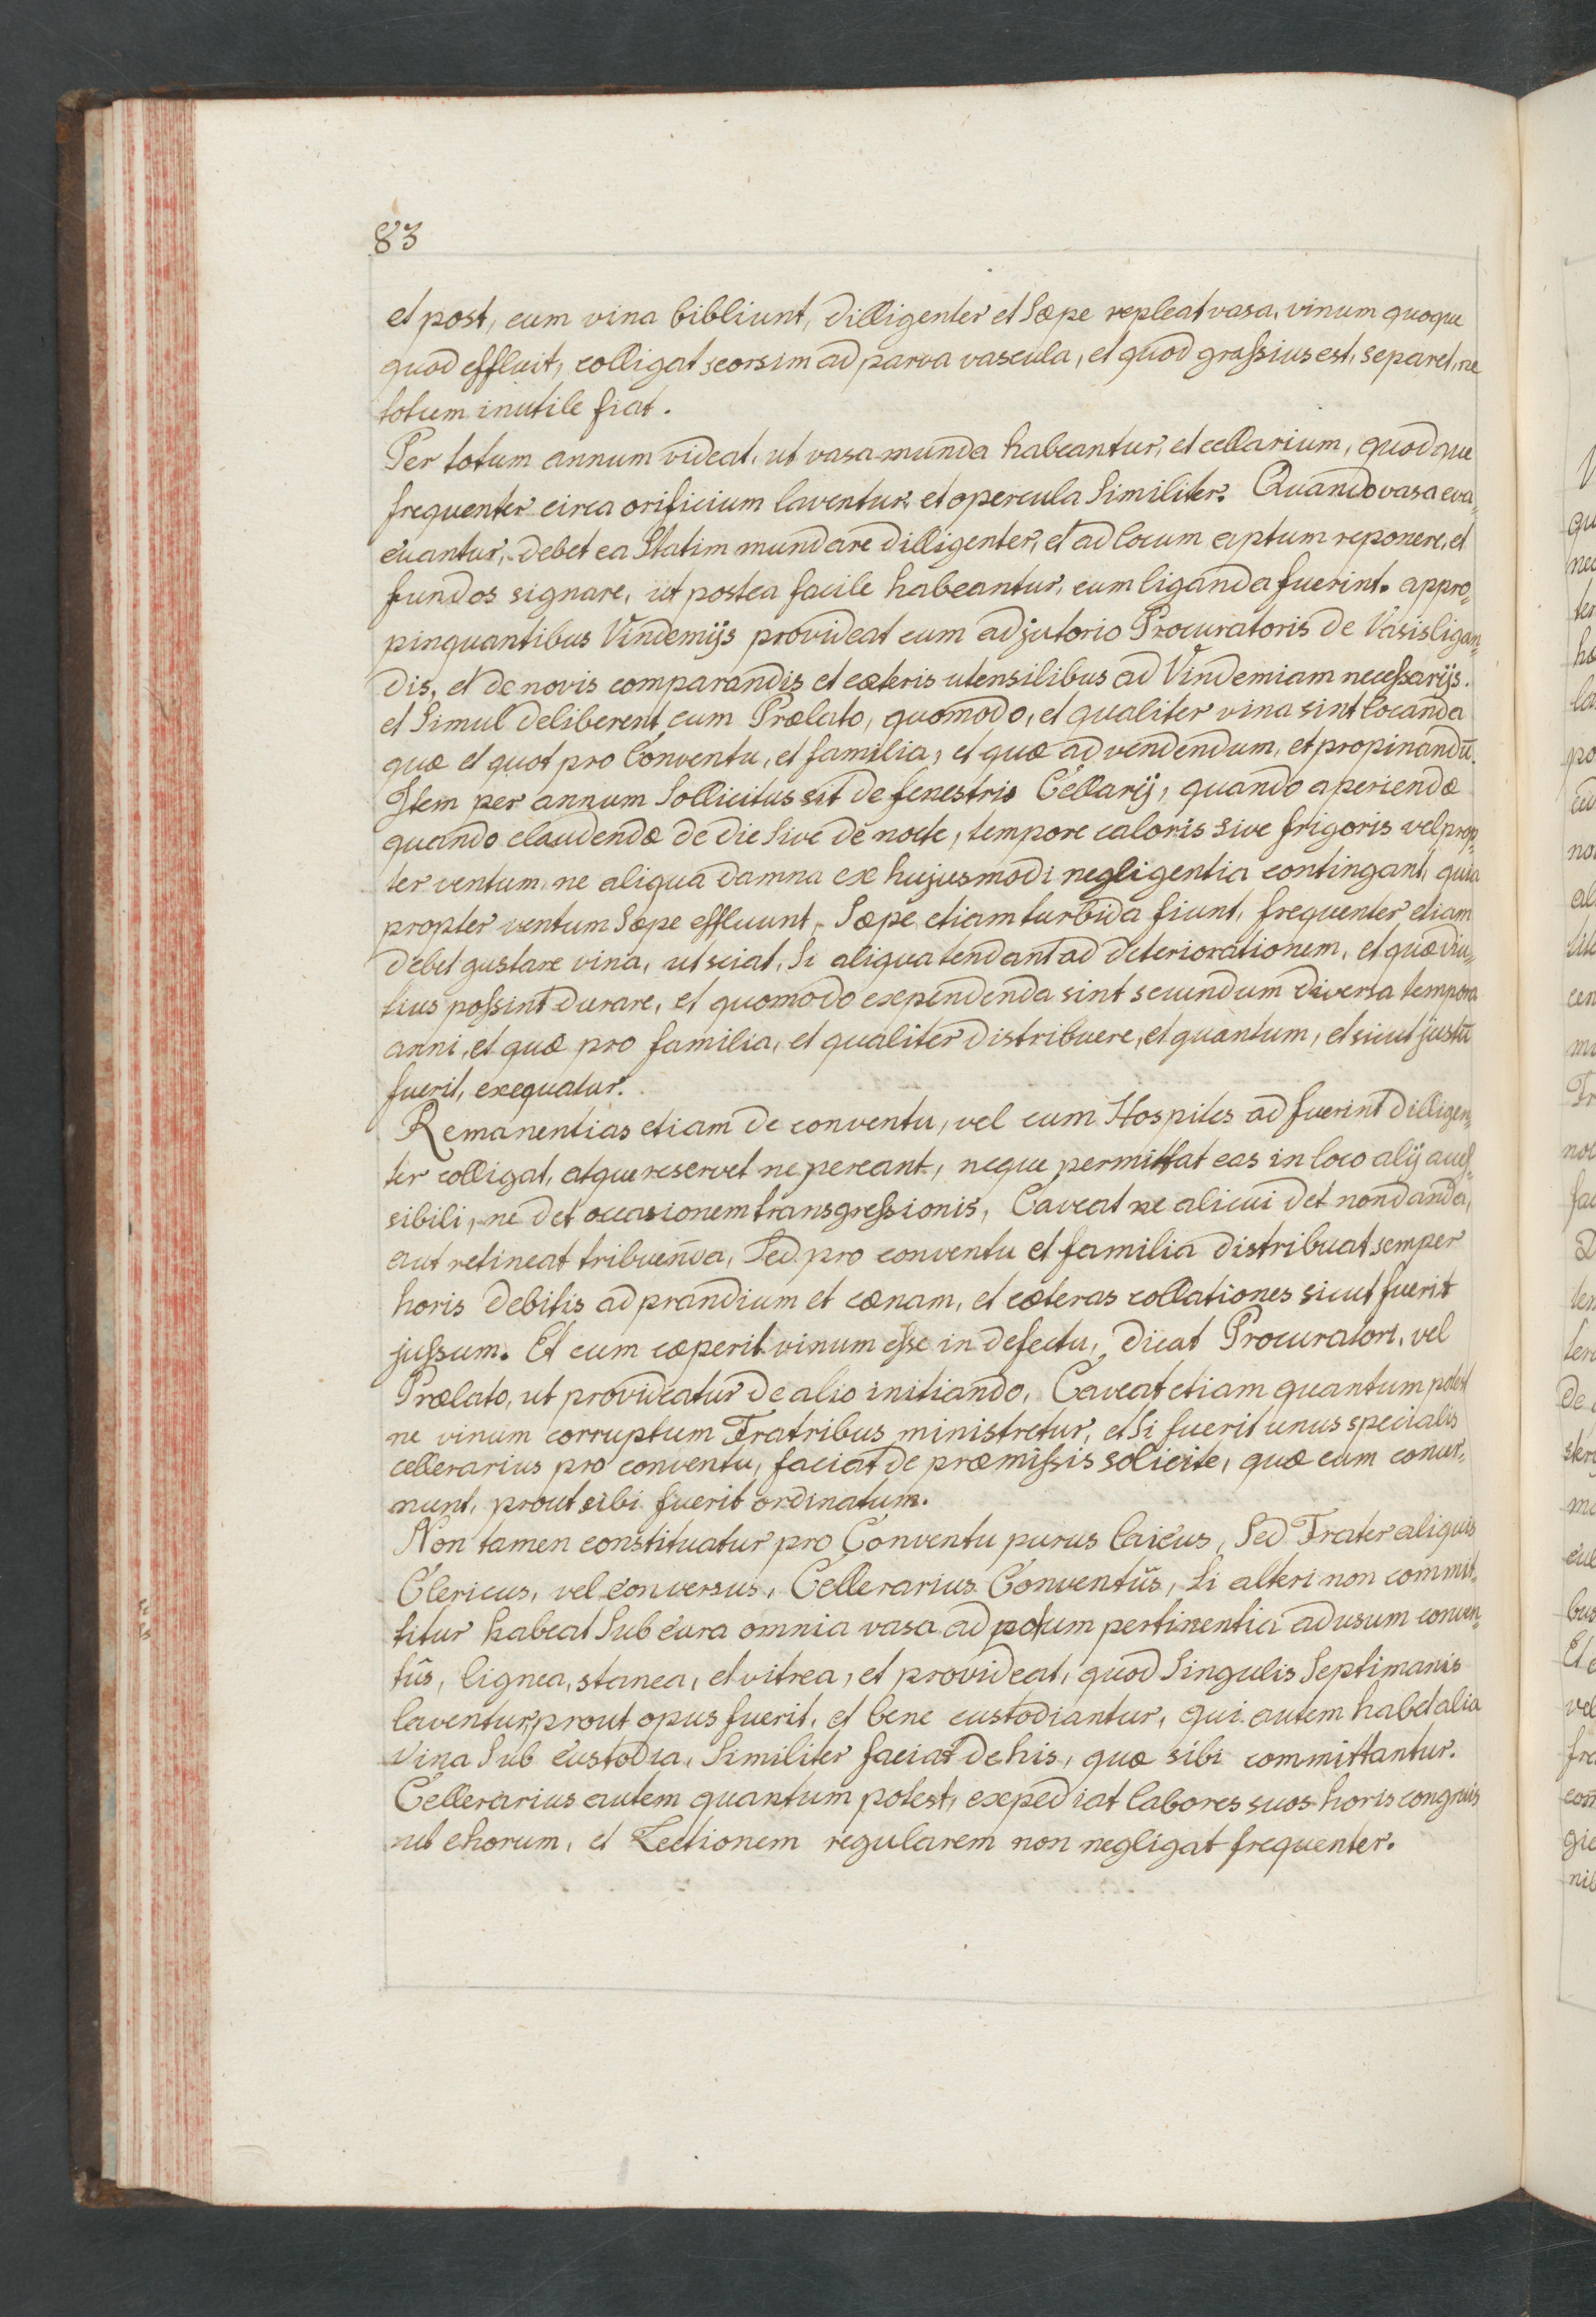 83
et post, cum vina bibliunt, dilligenter et sæpe repleat vasa, vinum quoque
quod effluit, colligat seorsim ad parva vascula, et quod graſsius est, separet, ne
totum inutile fiat.
Per totum annum videat, ut vasa munda habeantur, et cellarium, quodque
frequenter circa orificium laventur, et opercula similiter. Quando vasa eva-
cuantur, debet ea statim mundare dilligenter, et ad locum aptum reponere, et
fundos signare, ut postea facile habeantur, cum liganda fuerint. appro-
pinquantibus Vindemijs provideat cum adjutorio Procuratoris de Vasis ligan-
dis, et de novis comparandis et cæteris utensilibus ad Vindemiam neceſsarijs.
et simul deliberent cum Prælato, quomodo, et qualiter vina sint locanda
quæ et quot pro Conventu, et familia, et quæ ad vendendum, et propinandū.
Item per annum sollicitus sit de fenestris Cellarij, quando aperiendæ
quando claudendæ de die sive de nocte, tempore caloris sive frigoris vel prop-
ter ventum ne aliqua damna ex hujusmodi negligentia contingant, quia
propter ventum sæpe effluunt, sæpe etiam turbida fiunt, frequenter etiam
debet gustare vina, ut sciat, si aliqua tendant ad deteriorationem, et quæ diu-
tius poſsint durare, et quomodo expendenda sint secundum diversa tempora
anni, et quæ pro familia, et qualiter distribuere, et quantum, et sicut justū
fuerit, exequatur.
Remanentias etiam de conventu, vel cum Hospites adfuerint dilligen-
ter colligat, atque reservet ne pereant, neque permittat eas in loco alij aceſ-
sibili, ne det occasionem transgreſsionis, Caveat ne alicui det non danda,
aut retineat tribuenda, sed pro conventu et familia distribuat semper
horis debitis ad prandium et cænam, et cæteras collationes sicut fuerit
juſsum. Et cum cæperit vinum eſse in defectu, dicat Procuratori, vel
Prælato, ut provideatur de alio initiando, Caveat etiam quantum potest
ne vinum corruptum Fratribus ministretur, et si fuerit unus specialis
cellerarius pro conventu, faciat de præmiſsis solicite, quæ eum concer-
nunt, prout sibi fuerit ordinatum.
Non tamen constituatur pro Conventu purus laicus, sed Frater aliquis
Clericus, vel conversus, Cellerarius Conventûs, si alteri non commit-
titur habeat sub cura omnia vasa ad potum pertinentia ad usum conven-
tûs, lignea, stanea, et vitrea, et provideat, quod singulis septimanis
laventur, prout opus fuerit, et bene custodiantur, qui autem habet alia
vina sub custodia, similiter faciat de his, quæ sibi committantur.
Cellerarius autem quantum potest, expediat labores suos horis congruis
ut chorum, et Lectionem regularem non negligat frequenter.